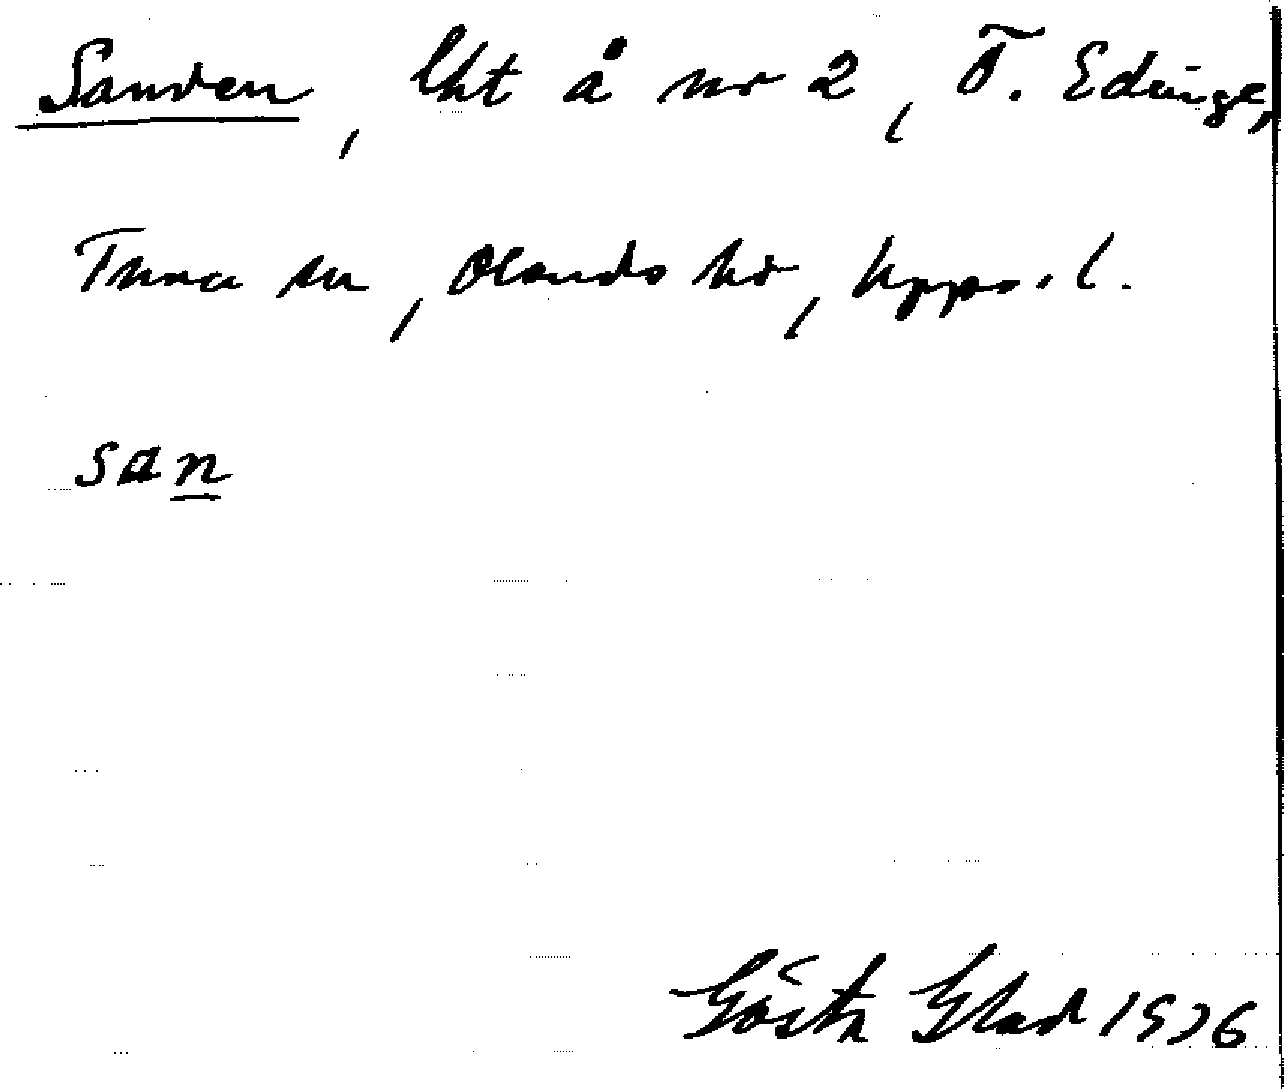 Sanden, lht å nr 2, Ö. Edinge,
Tuna sn, Olands hd, Upps. l.
san
Gösta Glad 1926